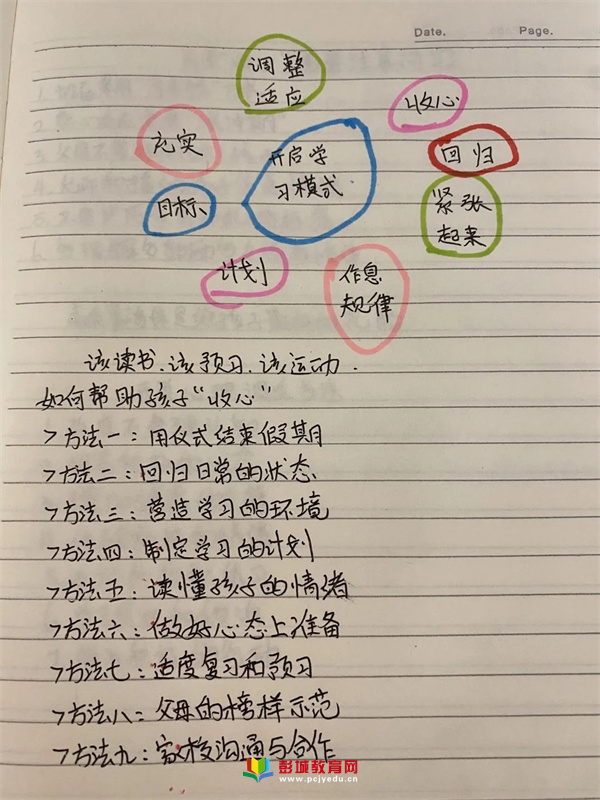 Date.
Page.
调整
适应
收心
充实
开启学
习模式.
回归
目标
紧张
起来
计划
作息
规律
该读书.该预习.该运动.
如何帮助孩子“收心”
>方法一:用仪式结束假期
>方法二:回归日常的状态
>方法三:营造学习的环境
>方法四:制定学习的计划
>方法五:读懂孩子的情绪
>方法六:做好心态上准备
>方法七:适度复习和预习
>方法八:父母的榜样示范
>方法九:家校沟通与合作
彭城教育网
www.pcjyedu.cn